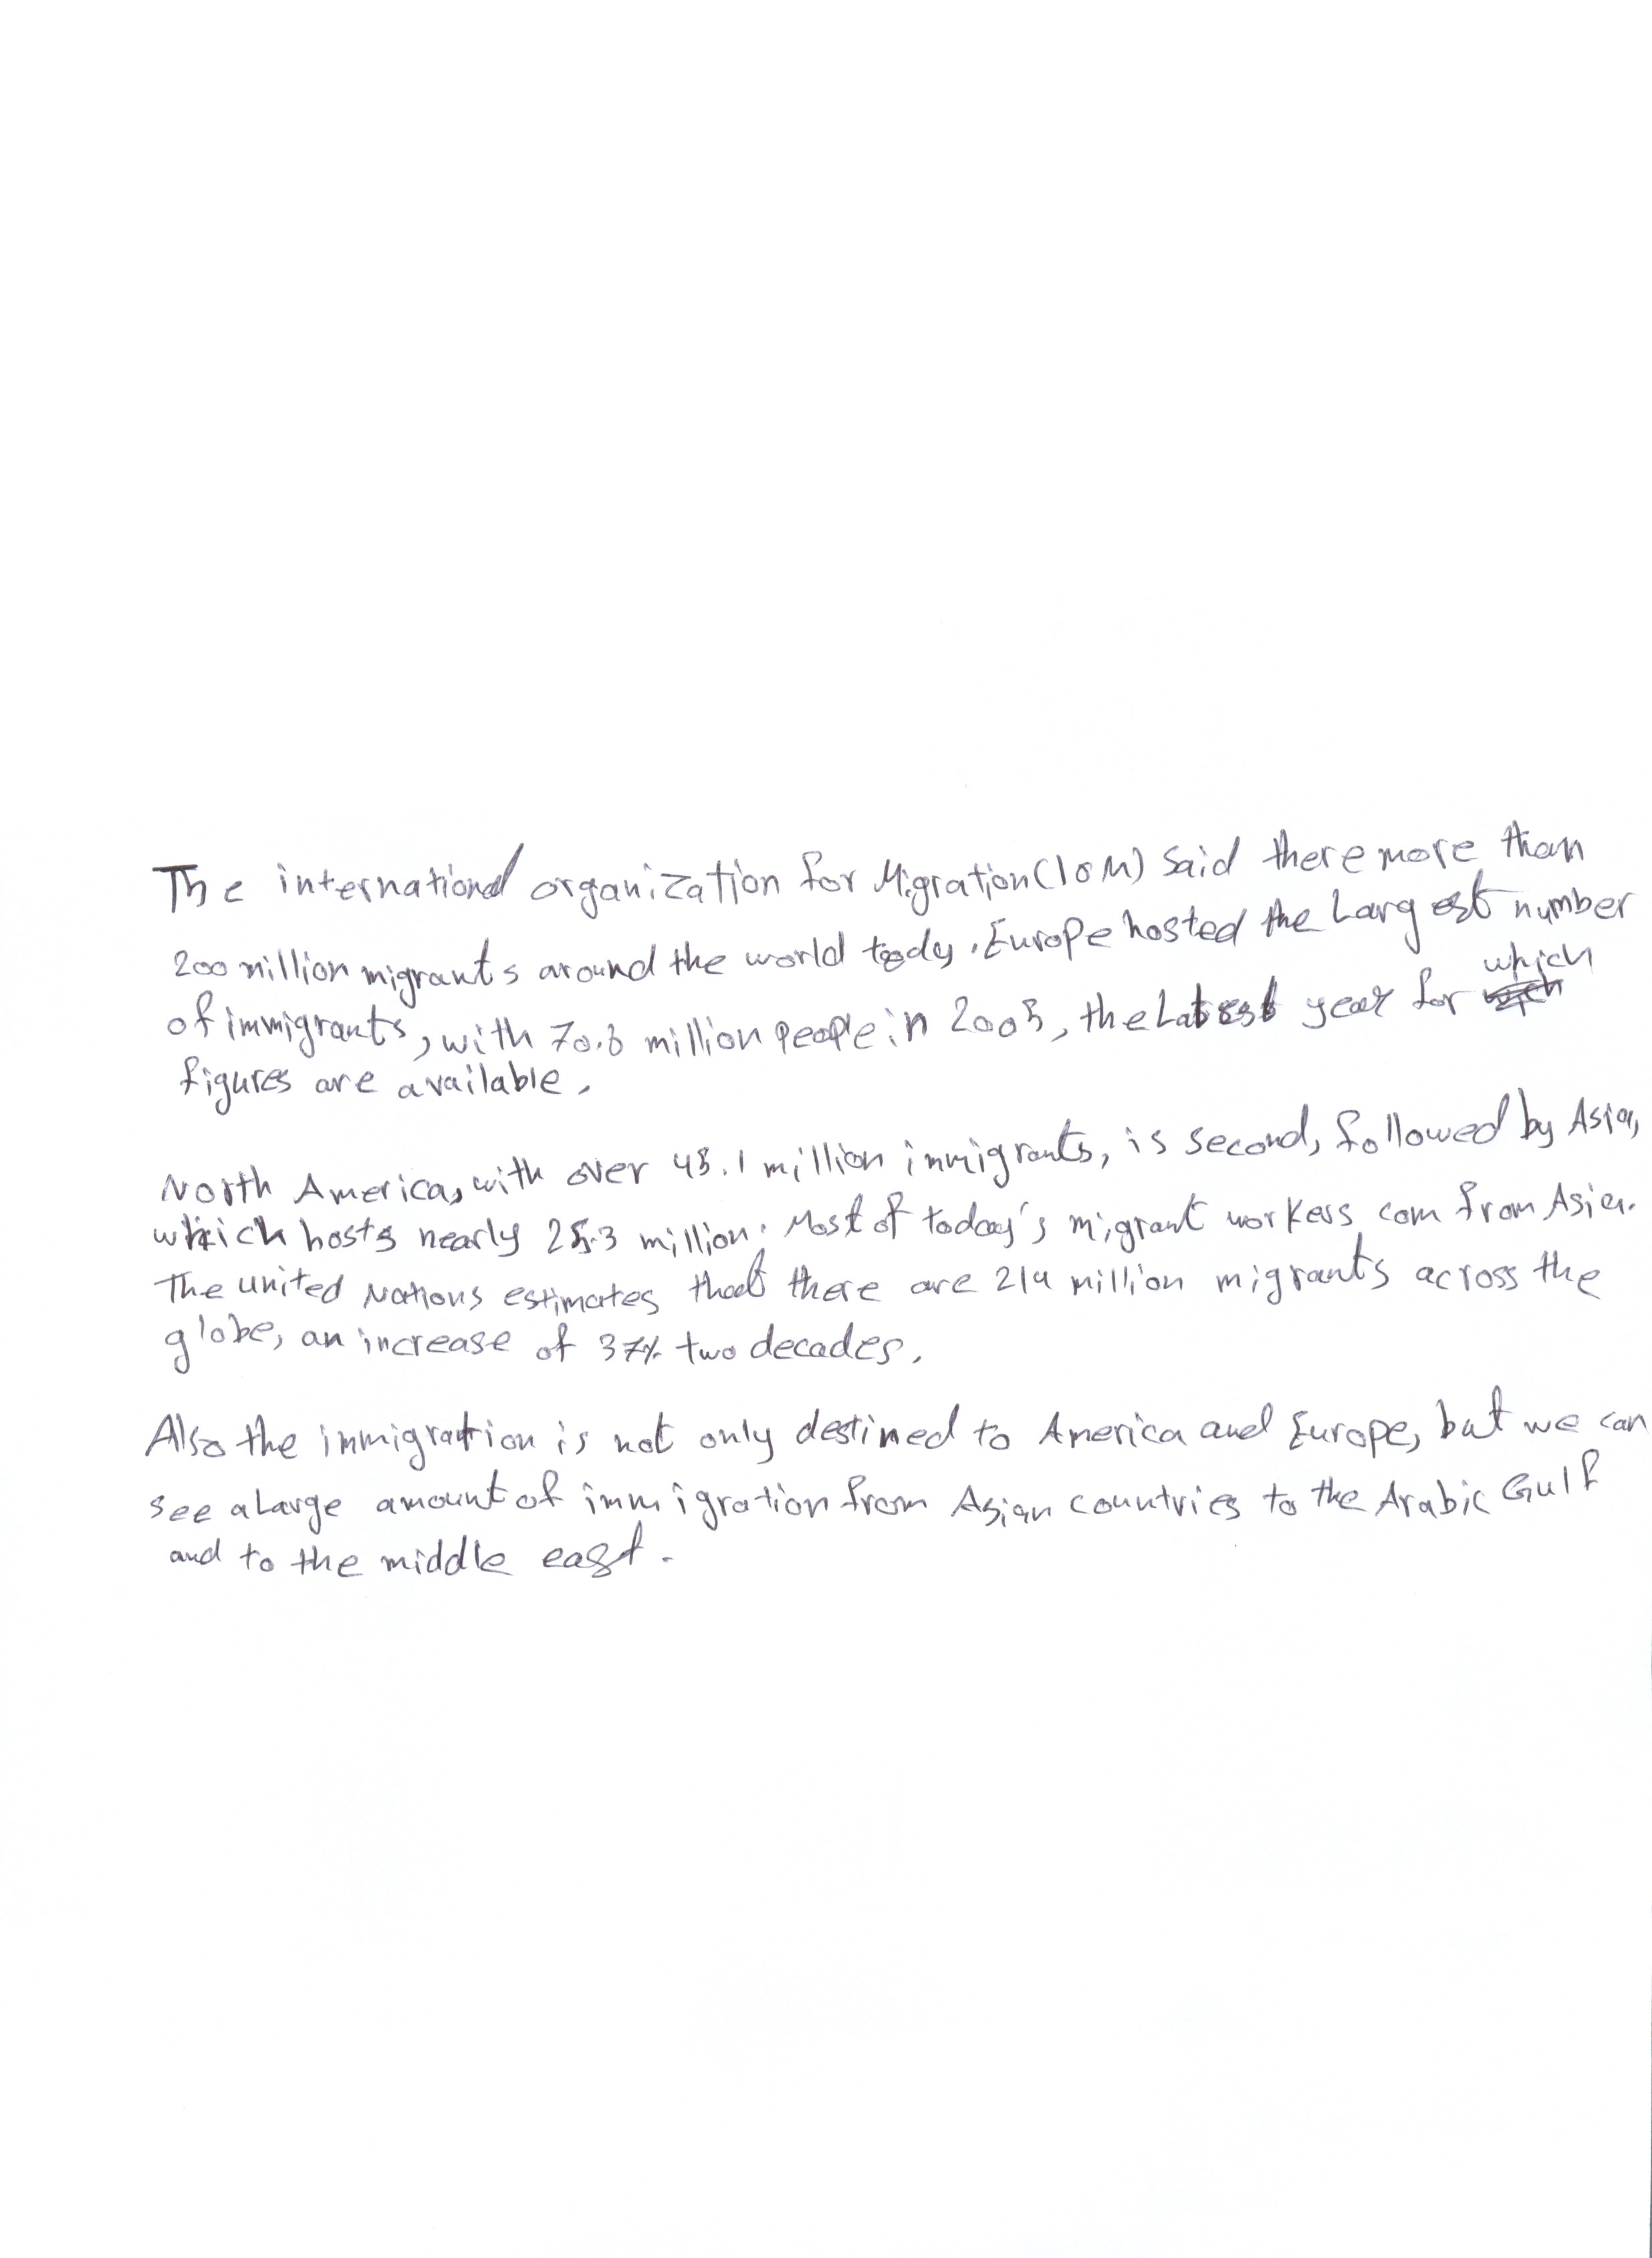 The international organization for Migration (IOM) said there more than
200 million migrants around the world tody. Europe hosted the Largest number
of immigrants, with 70.6 million people in 2005, the Latest year for which
figures are available.
North America, with over 45.1 million immigrants, is second, followed by Asia,
which hosts nearly 25.3 million. Most of today's migrant workers com from Asia.
The united Nations estimates that there are 214 million migrants across the
globe, an increase of 37% two decades.
Also the immigration is not only destined to America and Europe, but we can
see a Large amount of immigration from Asian countries to the Arabic Gulf
and to the middle east.